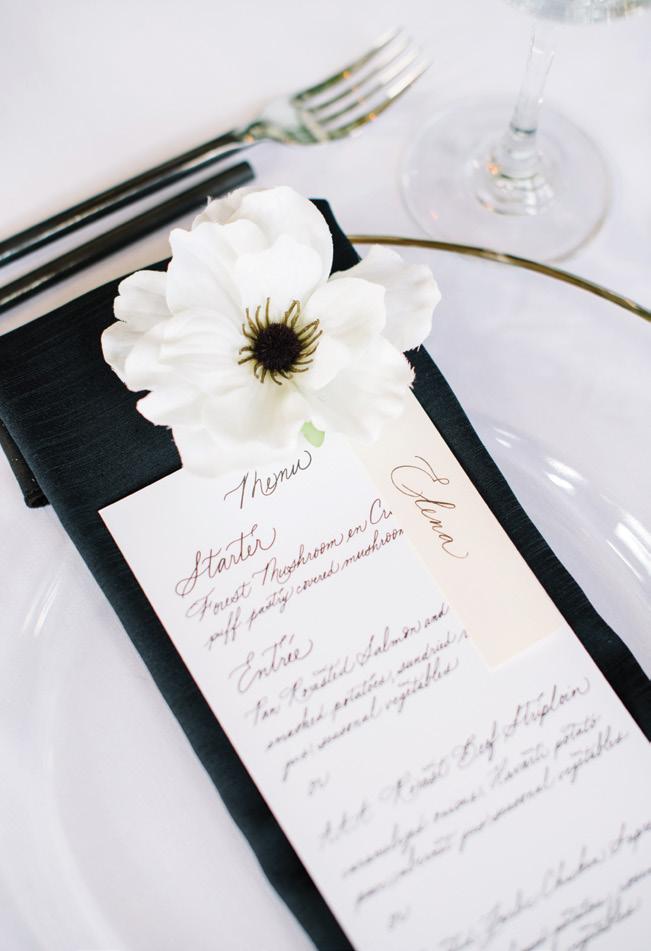 Menu
Elena
Starter
Forest Mushroom en
puff pastry covered mushroom
Entrée
Pan Roasted Salmon and
smashed potatoes, sundried
jus, seasonal vegetables
or
AAA Roast Beef Striploin
caramelized onions, Havarti potato
jus, seasonal vegetables
or
Chicken
potatoes,
vegetables